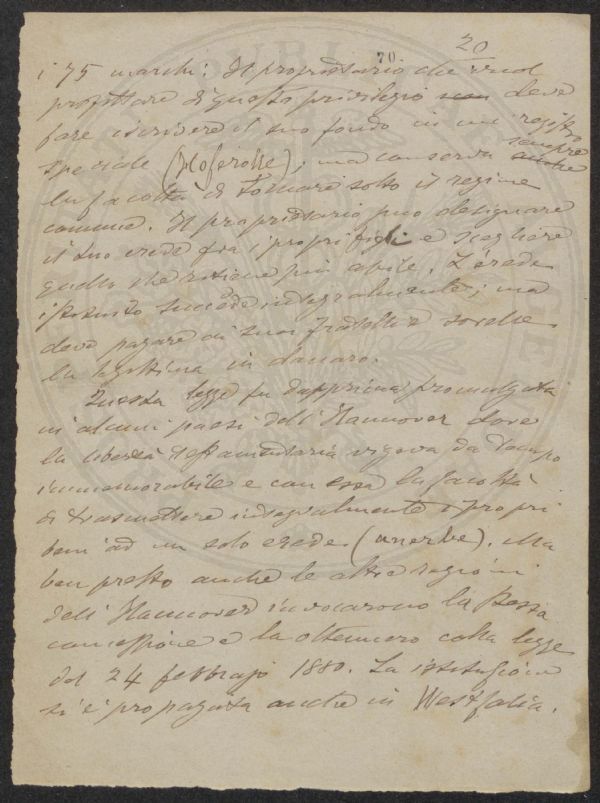 70 20
i 75 marchi: Il proprietario che vuol
profittare di questo privilegio non deve
fare iscrivere il suo fondo in un regist.
speciale (Hoferolle); ma conserva sempre anche
la facoltà di tornare sotto il regime
comune. Il proprietario può designare
il suo erede fra i propri figli e scegliere
quello che ritiene più abile. L'erede
istituito succede integralmente; ma
deve pagare ai suoi fratelli e sorelle
la legittima in danaro.
Questa legge fu dapprima promulgata
in alcuni paesi dell'Hannover dove
la libertà testamentaria vigeva da tempo
immemorabile e con essa la facoltà
di trasmettere integralmente i propri
beni ad un solo erede (anerbe). Ma
ben presto anche le altre regioni
dell'Hannover invocarono la stessa
concessione e la ottennero colla legge
del 24 febbrajo 1880. La istituzione
si è propagata anche in Westfalia.